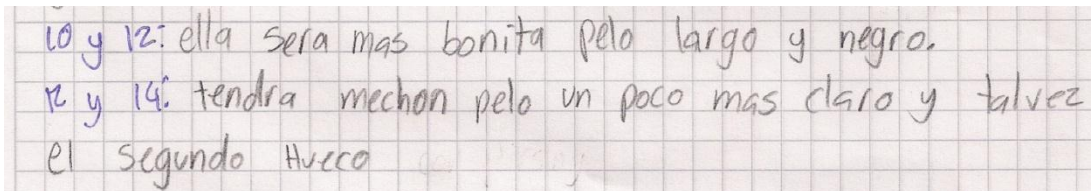 10 y 12: ella sera mas bonita pelo largo y negro.
12 y 14: tendra mechon pelo un poco mas claro y talvez
el segundo Hueco